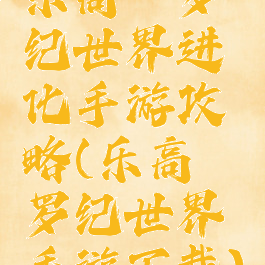 乐高 罗
纪世界进
化手游攻
略(乐高
罗纪世界
手游下载)